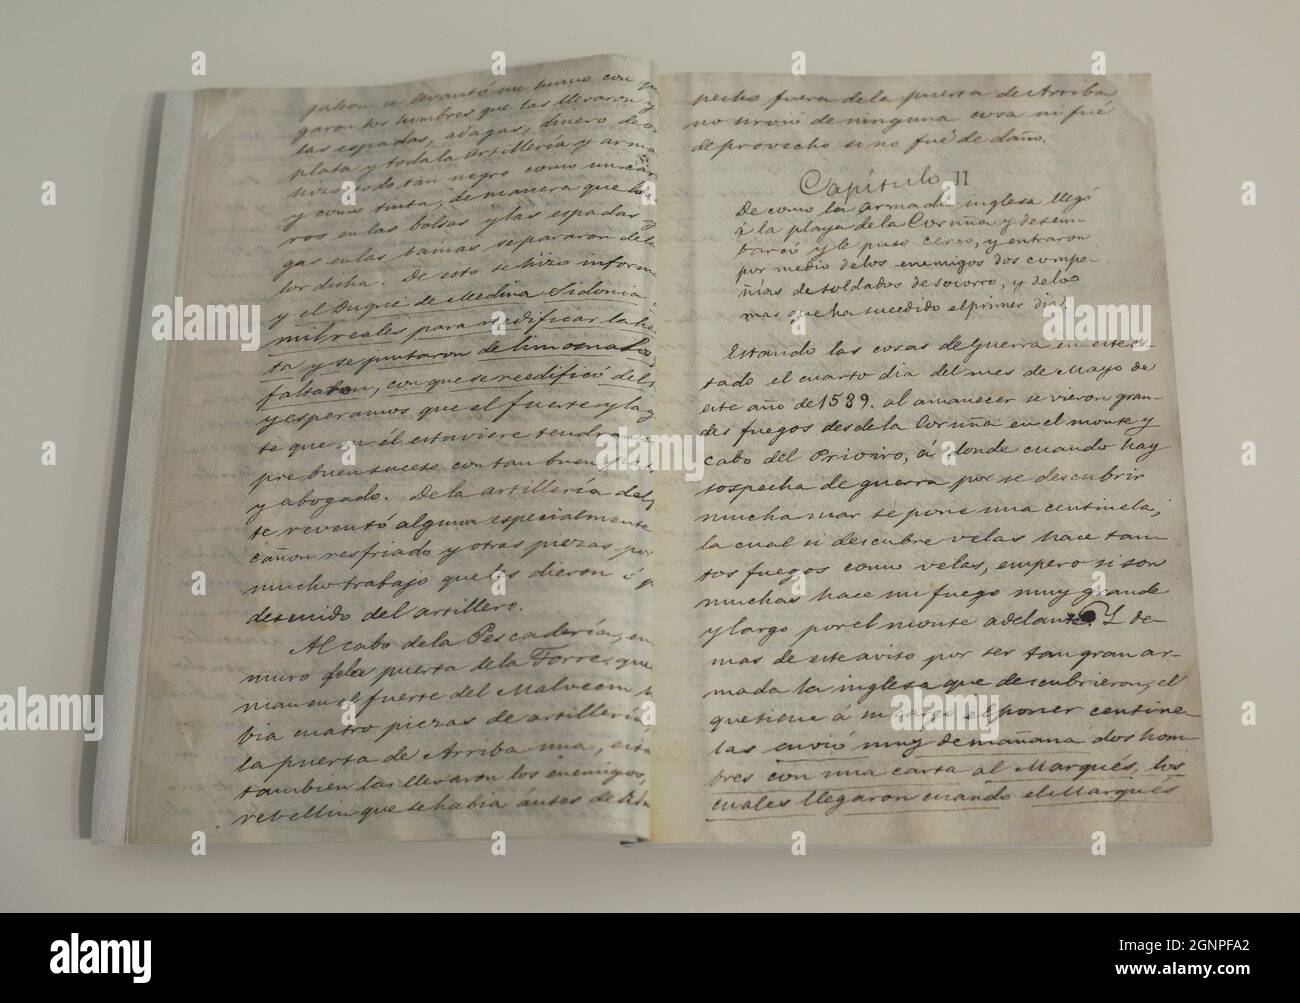 se levantó un humo con
garon los hombres que las llevaron y
las espadas, adagas, dinero de o
plata y toda la artillería y arma
tan negro como un car
y como tinta, de manera que los
ros en las bolsas y las espadas y
gas en las bainas se apararon del
lor dicha. De esto se hizo informa
y el Duque de Medina Sidonia
mil reales para reedificar la
ta y se juntaron de limosna los
faltaban, con que se reedificó del
y esperamos que el fuerte y la g
te que en él estuviere tendran
pre buen suceso con tan buen
y abogado. De la artillería del
te reventó alguna especialmente
cañon resfriado y otras piezas por
mucho trabajo que les dieron ó
descuido del artillero.
Al cabo de la Pescadería, en
muro de la puerta de la Torre, que
man en el fuerte del Malvecin
bia cuatro piezas de artillería,
la puerta de Arriba una, esta
tambien las llevaron los enemigos,
rebellin que se habia ántes de
pecho fuera de la puerta de Arriba
no sirvió de ninguna cosa ni fué
de provecho si no fué de daño.
Capítulo II
De como la armada inglesa llegó
á la playa de la Coruña y desem
barcó y le puso cerco, y entraron
por medio de los enemigos dos compa-
ñías de soldados de socorro, y de lo
mas que ha sucedido el primer dia.
Estando las cosas de guerra en este es-
tado el cuarto dia del mes de Mayo de
este año de 1589. al amanecer se vieron gran-
des fuegos desde la Coruña en el monte y
cabo del Prioiro, á donde cuando hay
sospecha de guerra por se descubrir
mucha mar se pone una centinela,
la cual si descubre velas hace tan-
tos fuegos como velas, empero si son
muchas hace un fuego muy grande
y largo por el monte adelante. Y de-
mas de este aviso por ser tan gran ar-
mada la inglesa que descubrieron, el
que tiene á su cargo el poner centine-
las envió muy de mañana dos hom-
bres con una carta al Marqués, los
cuales llegaron cuando el Marqués
alamy
Image ID: 2GNPFA2
www.alamy.com